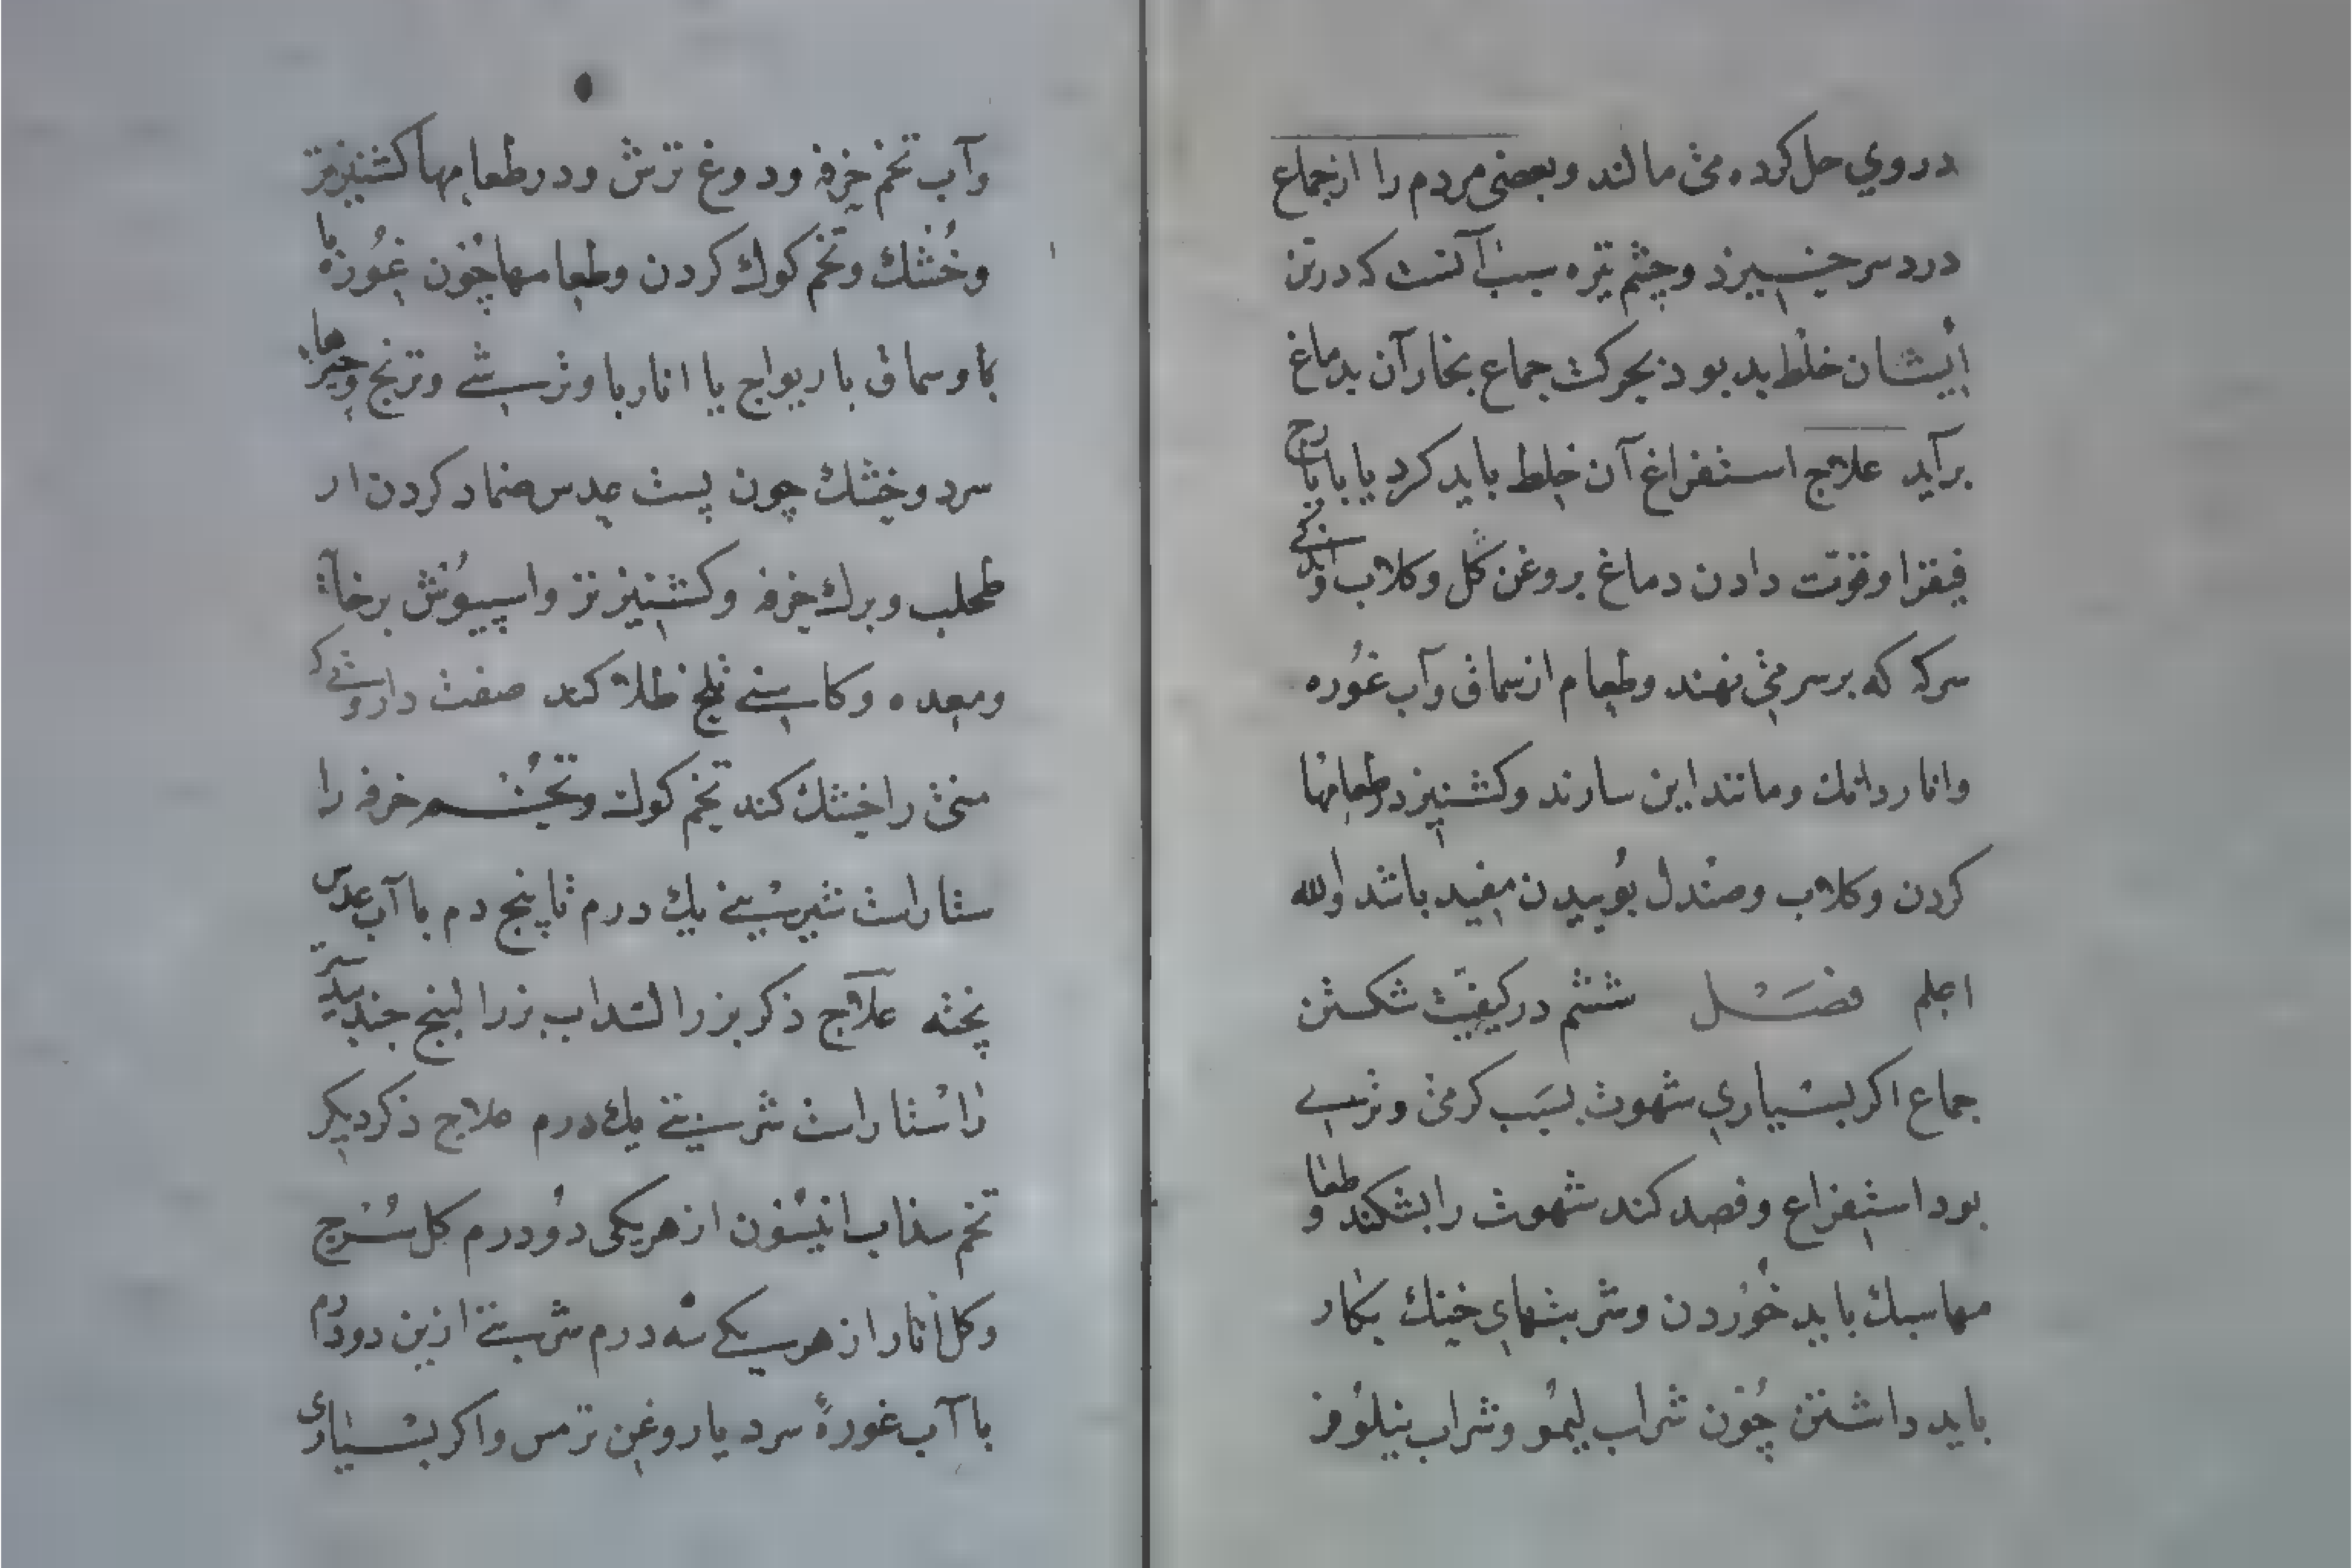 در روی حل کرده می مالند و بعضی مردم را از جماع
درد سر خیزد و چشم تیره سبب آنست که در تن
ایشان خلط بد بود بحرکت جماع بخار آن بدماغ
برآید علاج استفراغ آن خلط باید کرد یا بایارج
فیقرا و قوت دادن دماغ بروغن کل و کلاب و اندکی
سرکه که بر سر می نهند و طعام از سماق و آب غوره
و اناردانک و مانند این سازند و کشنیز در طعامها
کردن و کلاب و صندل بوییدن مفید باشد والله
اعلم فصل ششم در کیفیت شکستن
جماع اکر بسیاری شهوت بسبب کرمی و تری
بود استفراغ و فصد کند شهوت را بشکند و طعا
مها سبک باید خوردن و شربتهای خنک بکار
باید داشتن چون شراب لیمو و شراب نیلوفر
و آب تخم خرفه و دوغ ترش و در طعامها کشنیز تر
و خشک و تخم کوک کردن و طعامها چون غوره با
با و سماق با ریواج با انار با و ترشی و ترنج و چیزهاء
سرد و خشک چون پست عدس ضماد کردن از
طحلب و برک خرفه و کشنیز تر و اسپیوش بر خانه
و معده و کاسنی تلخ طلا کند صفت داروئی که
منی را خشک کند تخم کوک و تخم خرفه را
ستا راست شربتی یک درم تا پنج دم با آب عدس
پخته علاج ذکر بزر السداب بزر البنج جندبیدستر
راستا راست شربتی یک درم علاج ذکر دیکر
تخم سذاب انیسون از هر یکی دو درم کل سرخ
و کل انار از هر یکی سه درم شربتی ازین دو درم
با آب غورهٔ سرد یا روغن ترمس و اکر بسیاری